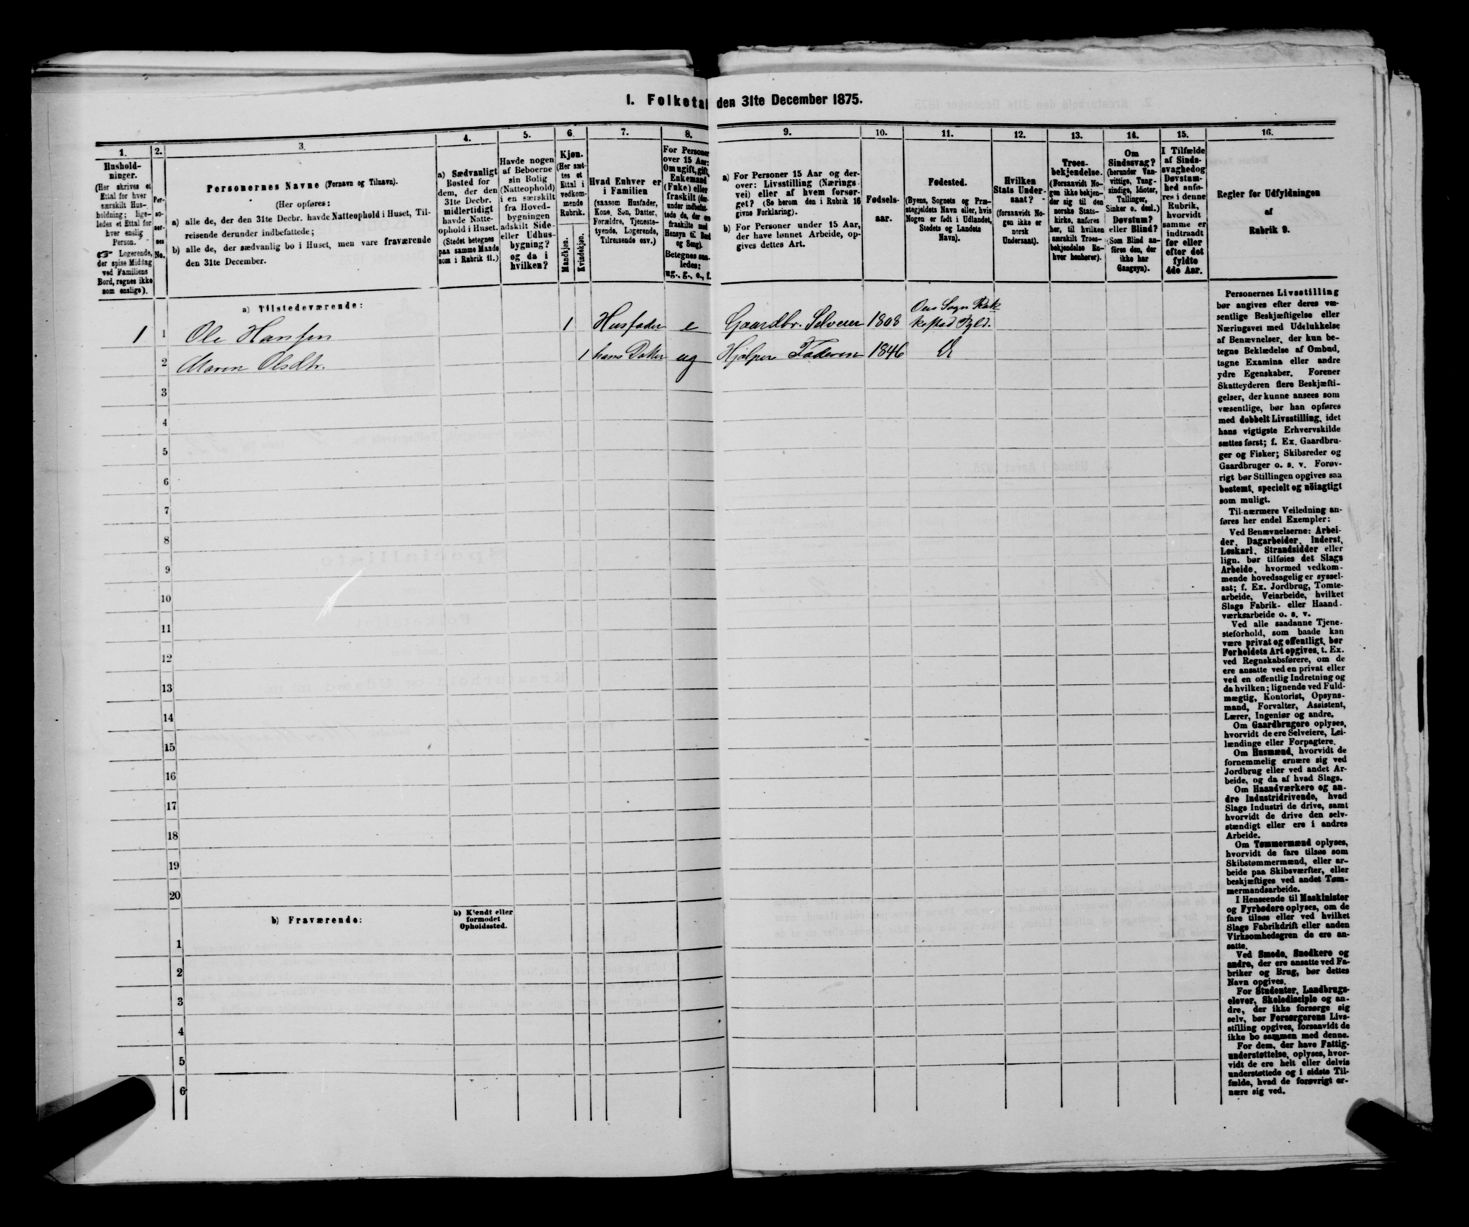 1. Folketal den 31te December 1875.
1.
Hushold-
ninger.
(Her skrives et
Ettal for hver
særskilt Hus-
holdning; lige-
ledes et Ettal for
hver enslig
Person.
Logerende,
der spise Middag
ved Familiens
Bord, regnes ikke
som enslige).
2.
Per-
so-
ner-
nes
No.
3.
Personernes Navne (Fornavn og Tilnavn).
(Her opføres:
a) alle de, der den 31te Decbr. havde Natteophold i Huset, Til-
reisende derunder indbefattede;
b) alle de, der sædvanlig bo i Huset, men vare fraværende
den 31te December.
4.
a) Sædvanligt
Bosted for
dem, der den
31te Decbr.
midlertidigt
havde Natte-
ophold i Huset.
(Stedet betegnes
paa samme Maade
som i Rubrik 11.)
5.
Havde nogen
af Beboerne
sin Bolig
(Natteophold)
i en særskilt
fra Hoved-
bygningen
adskilt Side-
eller Udhus-
bygning?
og da i
hvilken?
6.
Kjøn.
(Her sæt-
tes et
Ettal i
vedkom-
mende
Rubrik.
Mandkjøn.
Kvindekjøn.
7.
Hvad Enhver er
i Familien
(saasom Husfader,
Kone, Søn, Datter,
Forældre, Tjeneste-
tyende, Logerende,
Tilreisende osv.)
8.
For Personer
over 15 Aar:
Om ugift, gift,
Enkemand
(Enke) eller
fraskilt
Betegnes saa-
ledes:
ug., g., e., f.
9.
a) For Personer 15 Aar og der-
over: Livsstilling (Nærings-
vei) eller af hvem forsør-
get? (Se herom den i Rubrik 16
givne Forklaring).
b) For Personer under 15 Aar,
der have lønnet Arbeide, op-
gives dettes Art.
10.
Fødsels-
aar.
11.
Fødested.
(Byens, Sognets og Præ-
stegjeldets Navn eller, hvis
Nogen er født i Udlandet,
Stedets og Landets
Navn).
12.
Hvilken
Stats Under-
saat?
(forsaavidt No-
gen ikke er
norsk
Undersaat).
13.
Troes-
bekjendelse.
(Forsaavidt No-
gen ikke bekjen-
der sig til den
norske Stats-
kirke, anføres
her, til hvilken
særskilt Troes-
bekjendelse En-
hver henhører).
14.
Om
Sindssvag?
(herunder Van-
vittige, Tung-
sindige, Idioter,
Tullinger,
Sinker o. desl.)
Døvstum?
eller Blind?
(Som Blind an-
føres den, der
ikke har
Gangsyn).
15.
I Tilfælde
af Sinds-
svaghed og
Døvstum-
hed anfø-
res i denne
Rubrik,
hvorvidt
samme er
indtraadt
før eller
efter det
fyldte
4de Aar.
16.
Regler for Udfyldningen
af
Rubrik 9.
a) Tilstedeværende:
1 1 Ole Hansen 1 Husfader e Gaardbr. Selveier 1808
2 Maren Olsdtr. 1 hans Datter ug Hjælper Faderen 1846
3
4
5
6
7
8
9
10
11
12
13
14
15
16
17
18
19
20
b) Fraværende:
b) Kjendt eller
formodet
Opholdssted.
1
2
3
4
5
6
Personernes Livsstilling
bør angives efter deres væ-
sentlige Beskjæftigelse eller
Næringsvei med Udelukkelse
af Benævnelser, der kun be-
tegne Beklædelse af Ombud,
tagne Examina eller andre
ydre Egenskaber. Forener
Skatteyderen flere Beskjæfti-
gelser, der kunne ansees som
væsentlige, bør han opføres
med dobbelt Livsstilling, idet
hans vigtigste Erhvervskilde
sættes først; f. Ex. Gaardbru-
ger og Fisker; Skibsreder og
Gaardbruger o. s. v. Forøv-
rigt bør Stillingen opgives saa
bestemt, specielt og nöiagtigt
som muligt.
Til nærmere Veiledning an-
føres her endel Exempler:
Ved Benævnelserne: Arbei-
der, Dagarbeider, Inderst,
Løskarl, Strandsidder eller
lign. bør tilføies det Slags
Arbeide, hvormed vedkom-
mende hovedsagelig er syssel-
sat; f. Ex. Jordbrug, Tomte-
arbeide, Veiarbeide, hvilket
Slags Fabrik- eller Haand-
værksarbeide o. s. v.
Ved alle saadanne Tjene-
steforhold, som baade kan
være privat og offentligt, bør
Forholdets Art opgives, t. Ex.
ved Regnskabsførere, om de
ere ansatte ved en privat eller
ved en offentlig Indretning og
da hvilken; lignende ved Fuld-
mægtig, Kontorist, Opsyns-
mand, Forvalter, Assistent,
Lærer, Ingeniør og andre.
Om Gaardbrugere oplyses,
hvorvidt de ere Selveiere, Lei-
lændinge eller Forpagtere.
Om Husmænd, hvorvidt de
fornemmelig ernære sig ved
Jordbrug eller ved andet Ar-
beide, og da af hvad Slags.
Om Haandværkere og an-
dre Industridrivende, hvad
Slags Industri de drive, samt
hvorvidt de drive den selv-
stændigt eller ere i andres
Arbeide.
Om Tømmermænd oplyses,
hvorvidt de fare tilsøs som
Skibstømmermænd, eller ar-
beide paa Skibsværfter, eller
beskjæftiges ved andet Tøm-
mermandsarbeide.
I Henseende til Maskinister
og Fyrbødere oplyses, om de
fare tilsøs eller ved hvilket
Slags Fabrikdrift eller anden
Virksomhedsgren de ere an-
satte.
Ved Smede, Snedkere og
andre, der ere ansatte ved Fa-
briker og Brug, bør dettes
Navn opgives.
For Studenter, Landbrugs-
elever, Skoledisciple og an-
dre, der ikke forsørge sig
selv, bør Forsørgerens Livs-
stilling opgives, forsaavidt de
ikke bo sammen med denne.
For dem, der have Fattig-
understøttelse, oplyses, hvor-
vidt de ere helt eller delvis
understøttede og i sidste Til-
fælde, hvad de forøvrigt er-
nære sig ved.